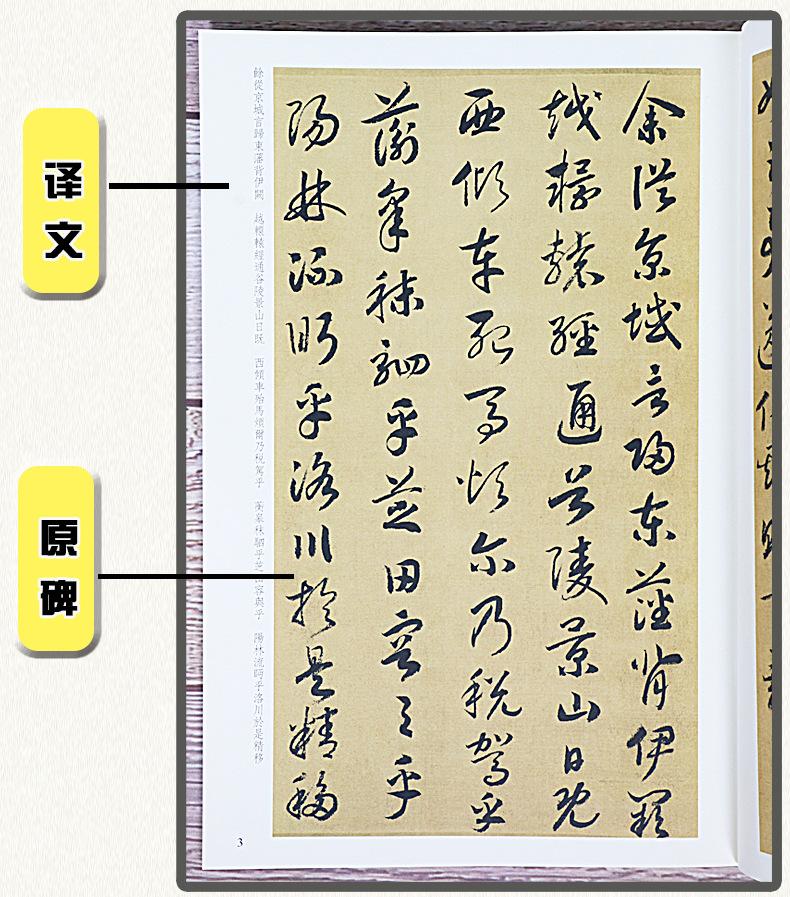 译文
原碑
余從京域言歸東藩背伊闕
越轘轅經通谷陵景山日既
西傾車殆馬煩尔乃稅駕乎
蘅皋秣駟乎芝田容与乎
陽林流眄乎洛川於是精移
餘從京域言歸東藩背伊闕 越轘轅經通谷陵景山日既 西傾車殆馬煩爾乃稅駕乎 蘅皋秣駟乎芝田容與乎 陽林流眄乎洛川於是精移
3